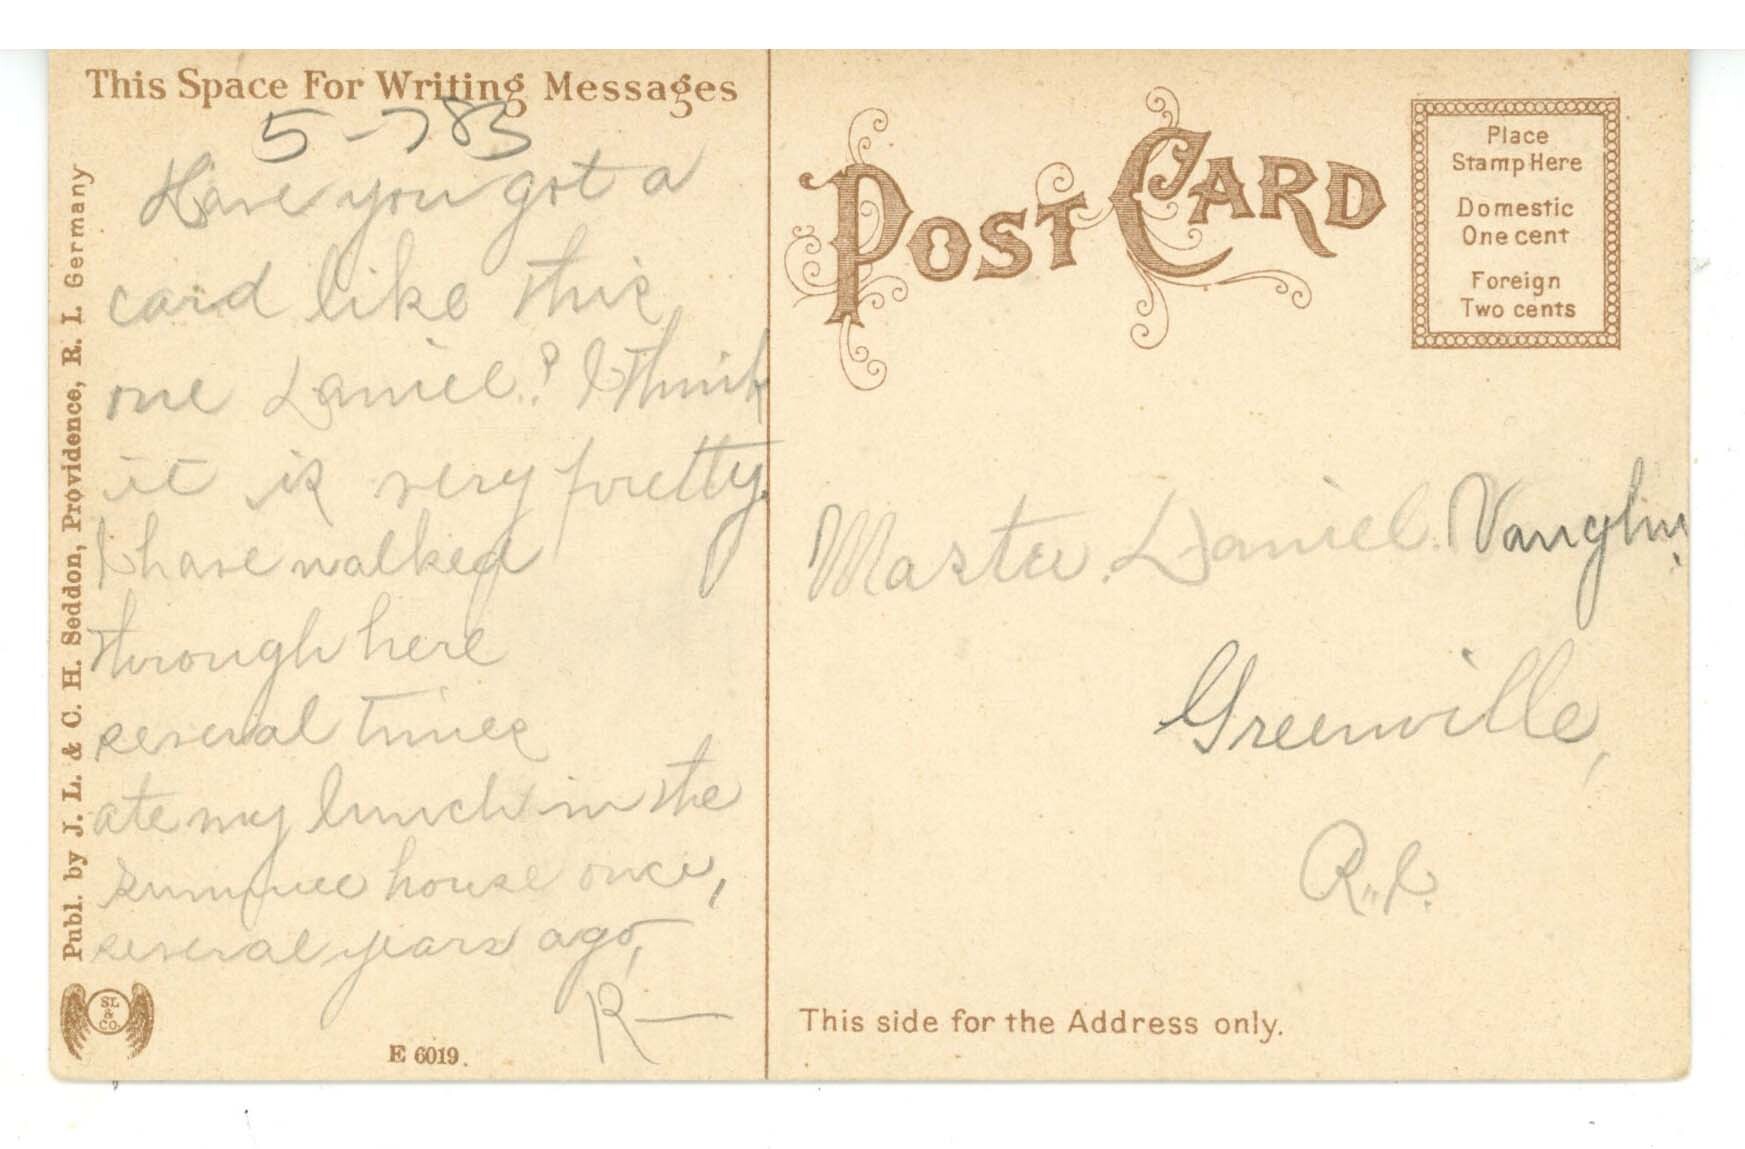 This Space For Writing Messages
5-783
Have you got a
card like this
one Daniel? I think
it is very pretty.
I have walked
through here
several times
ate my lunch in the
summer house once,
several years ago,
R—
Publ. by J. L. & C. H. Seddon, Providence, R. I. Germany
SL
&
CO.
E 6019.
POST CARD
Place
Stamp Here
Domestic
One cent
Foreign
Two cents
Master. Daniel. Vaughn.
Greenville,
R. I.
This side for the Address only.